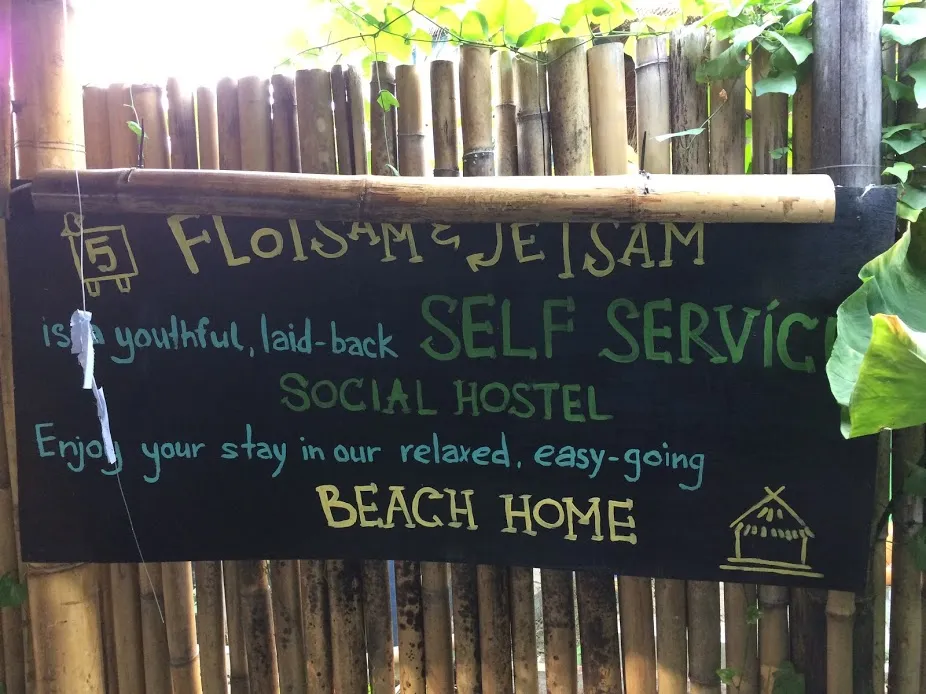 5 FLOTSAM & JETSAM
is a youthful, laid-back SELF SERVIC
SOCIAL HOSTEL
Enjoy your stay in our relaxed, easy-going
BEACH HOME